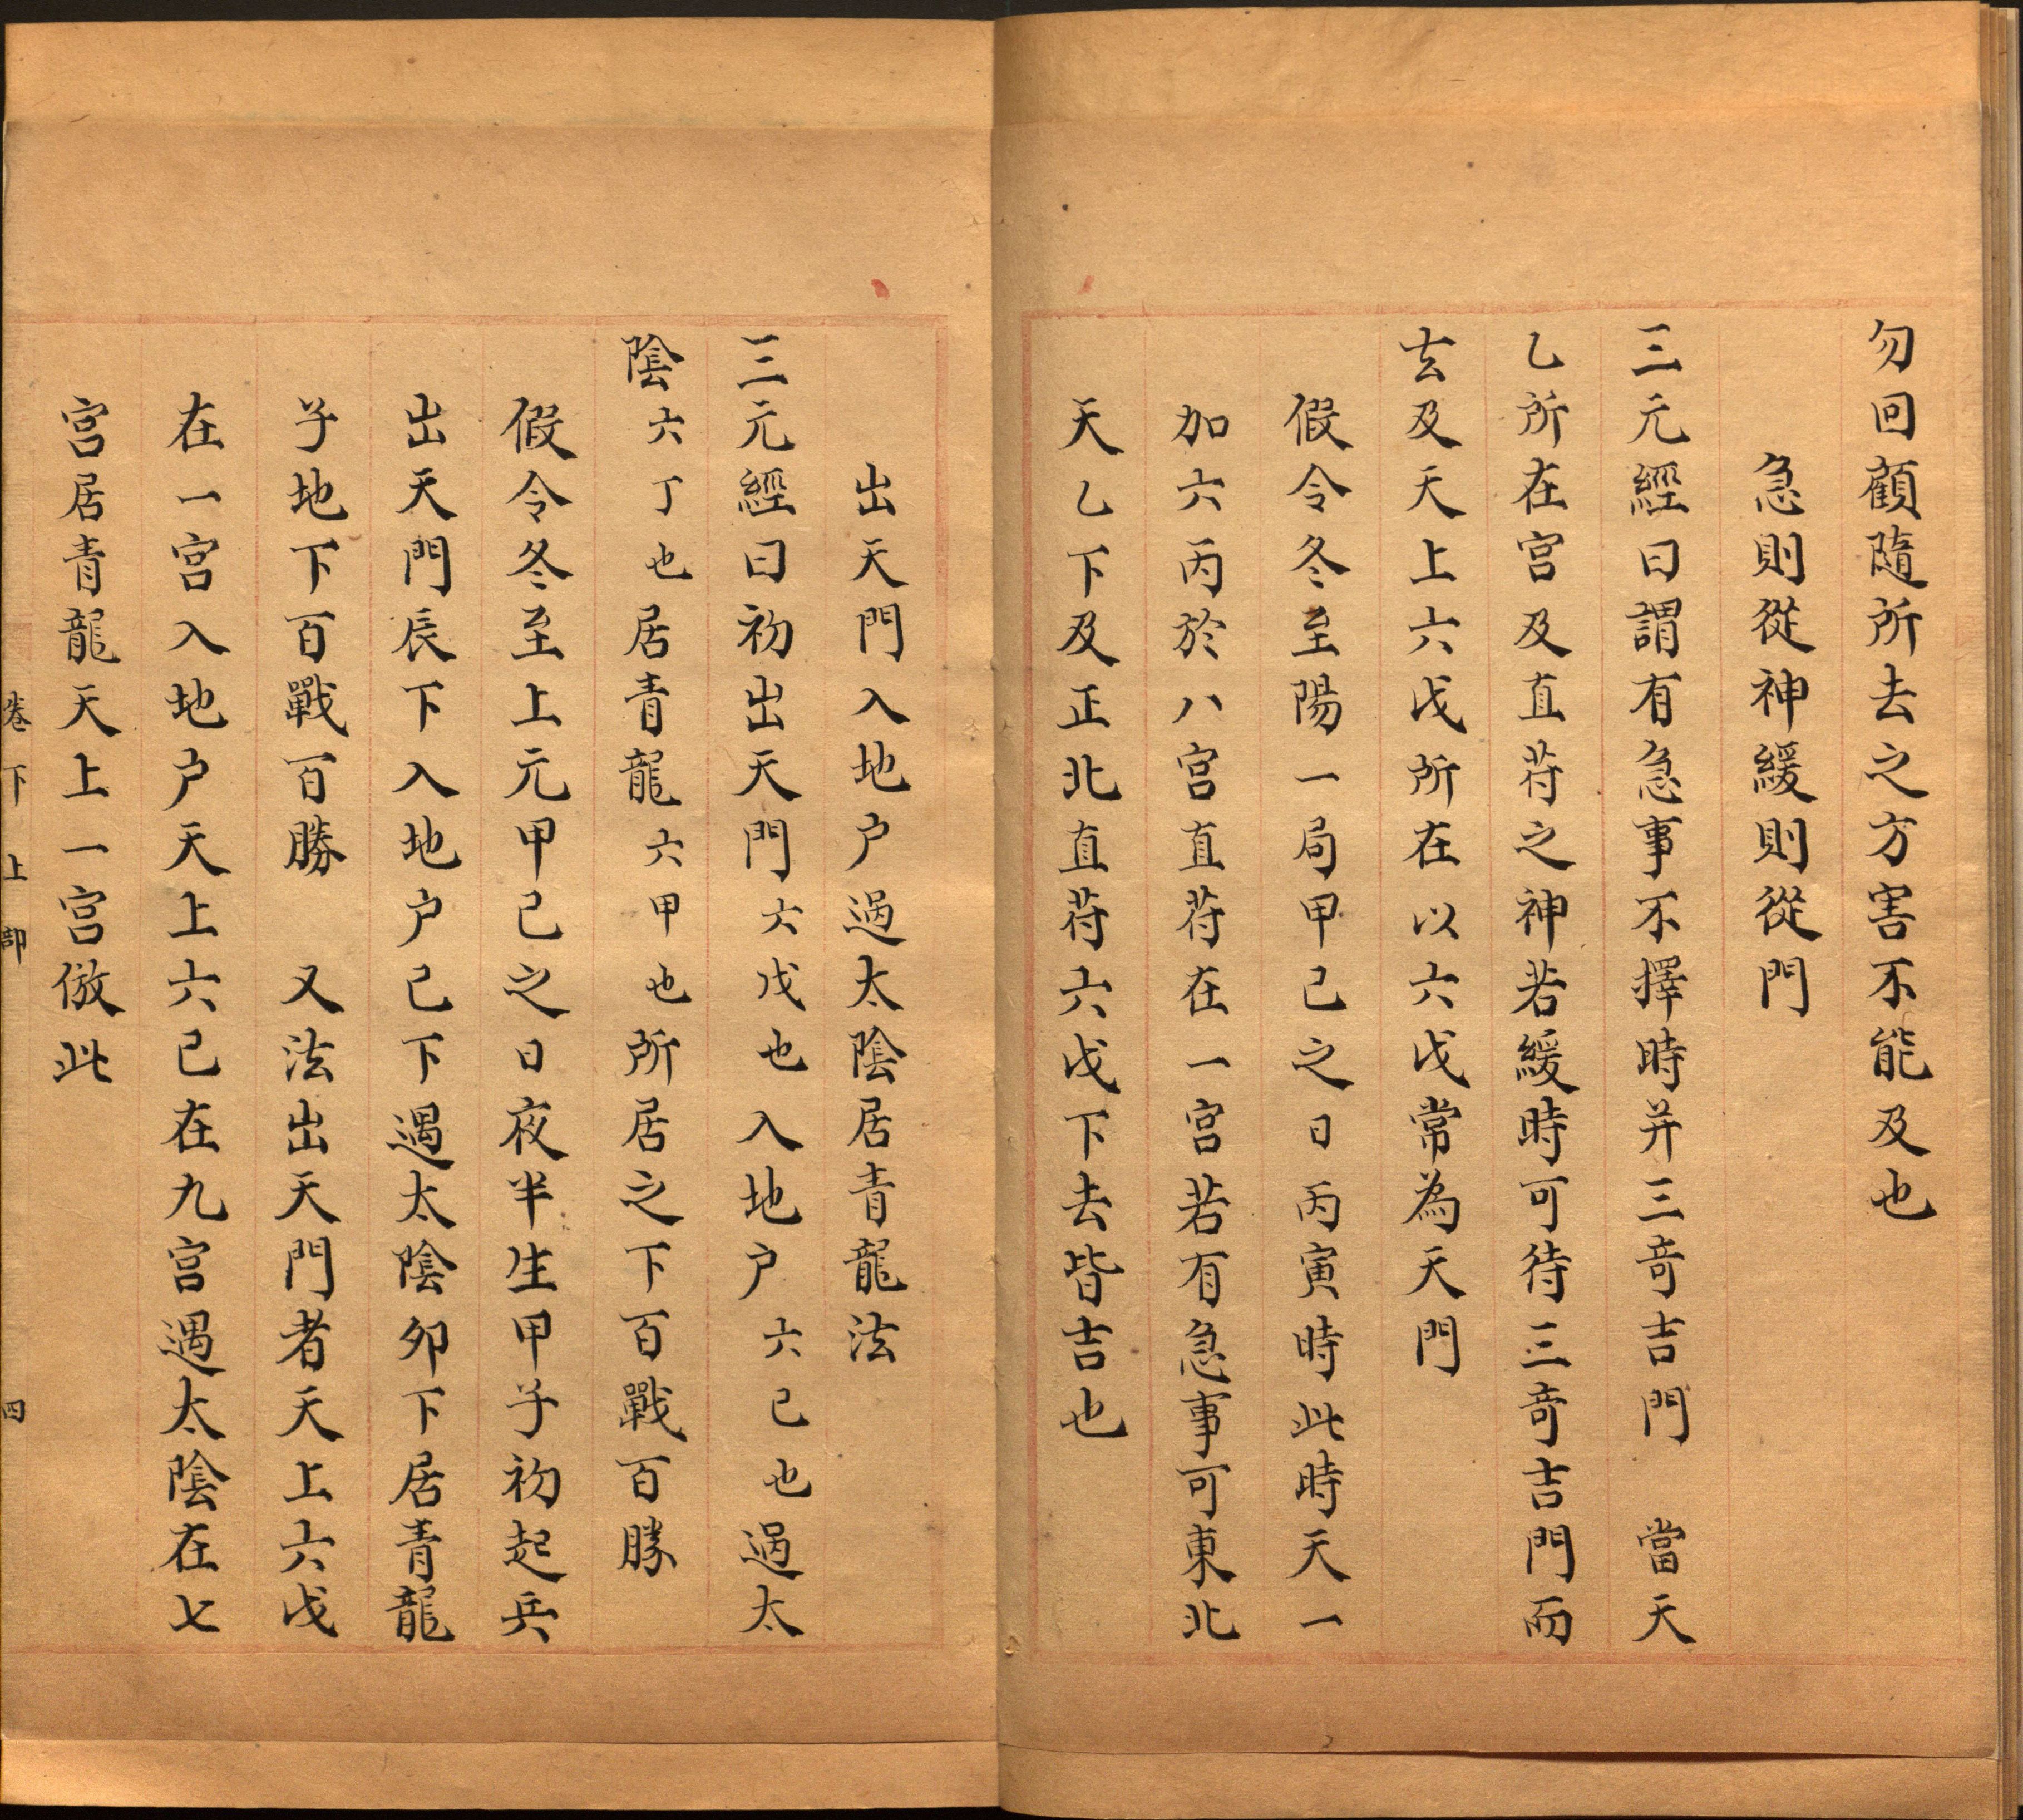 勿回顧隨所去之方害不能及也
急則從神緩則從門
三元經曰謂有急事不擇時并三奇吉門　當天
乙所在宮及直苻之神若緩時可待三奇吉門而
去及天上六戊所在以六戊常為天門
假令冬至陽一局甲己之日丙寅時此時天一
加六丙於八宮直苻在一宮若有急事可東北
天乙下及正北直苻六戊下去皆吉也
出天門入地户過太陰居青龍法
三元經曰初出天門六戊也入地户六己也過太
陰六丁也居青龍六甲也所居之下百戰百勝
假令冬至上元甲己之日夜半生甲子初起兵
出天門辰下入地户己下遇太陰卯下居青龍
子地下百戰百勝　又法出天門者天上六戊
在一宮入地户天上六己在九宮遇太陰在七
宮居青龍天上一宮倣此
卷下　上部　四